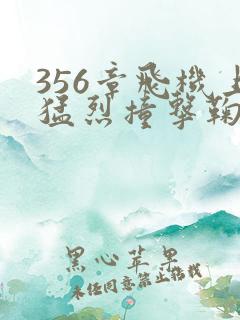 356章飛機上
猛烈撞擊鞠
黑心苹果
未经同意禁止转载